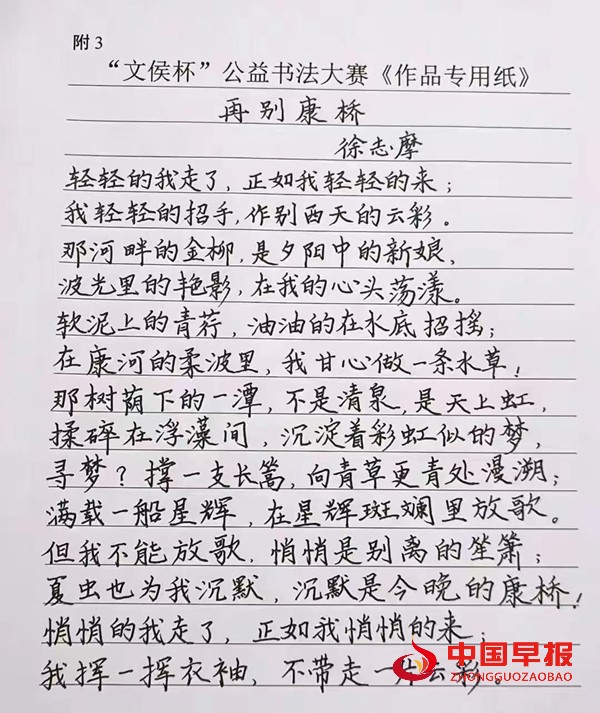 附3
“文侯杯”公益书法大赛《作品专用纸》
再别康桥
徐志摩
轻轻的我走了，正如我轻轻的来；
我轻轻的招手，作别西天的云彩。
那河畔的金柳，是夕阳中的新娘，
波光里的艳影，在我的心头荡漾。
软泥上的青荇，油油的在水底招摇；
在康河的柔波里，我甘心做一条水草！
那树荫下的一潭，不是清泉，是天上虹，
揉碎在浮藻间，沉淀着彩虹似的梦，
寻梦？撑一支长篙，向青草更青处漫溯；
满载一船星辉，在星辉斑斓里放歌。
但我不能放歌，悄悄是别离的笙箫；
夏虫也为我沉默，沉默是今晚的康桥！
悄悄的我走了，正如我悄悄的来；
我挥一挥衣袖，不带走一片云彩。
中国早报
ZHONGGUOZAOBAO